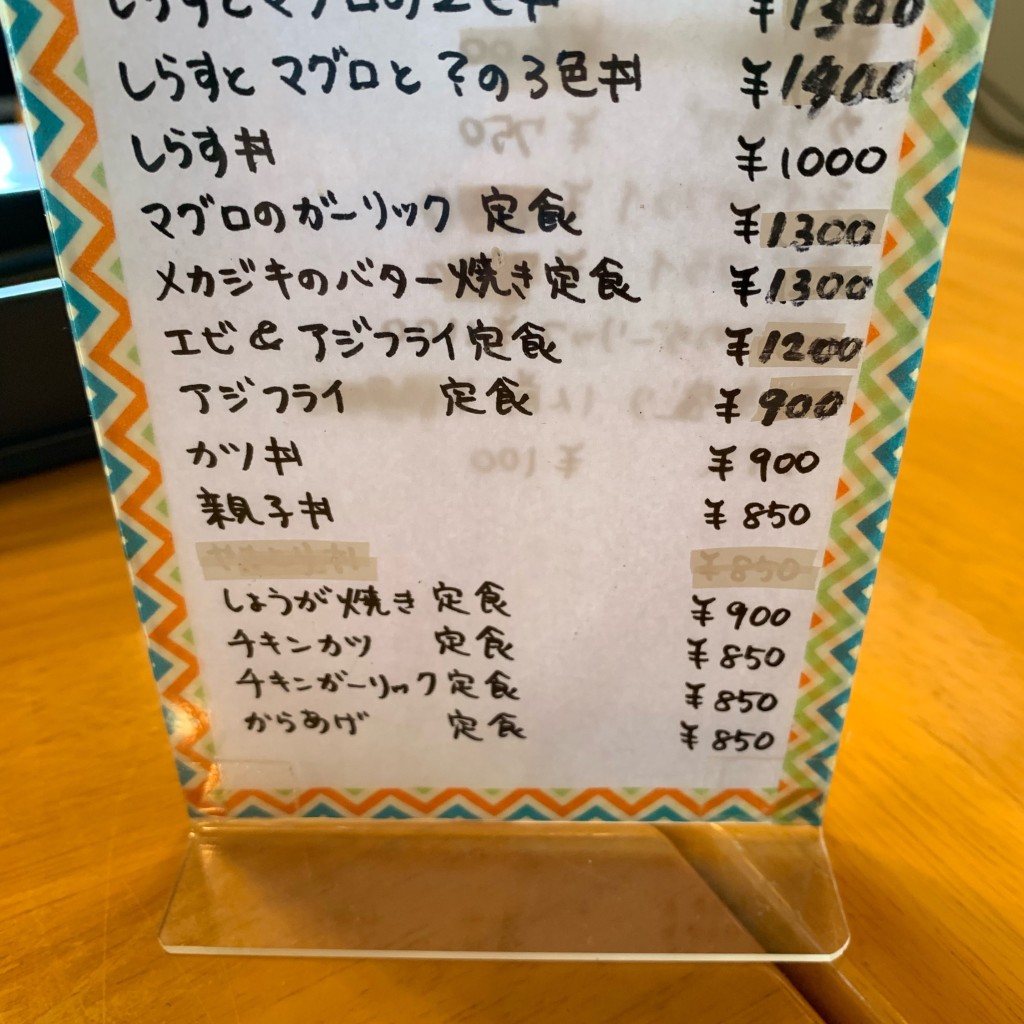 しらすとマグロの2色丼 ¥1300
しらすと マグロと ?の3色丼
しらす丼 ¥1000
マグロのガーリック 定食 ¥1300
メカジキのバター焼き定食 ¥1300
エビ & アジフライ定食 ¥1200
アジフライ 定食 ¥900
カツ丼 ¥900
親子丼 ¥850
¥850
しょうが焼き 定食 ¥900
チキンカツ 定食 ¥850
チキンガーリック定食 ¥850
からあげ 定食 ¥850